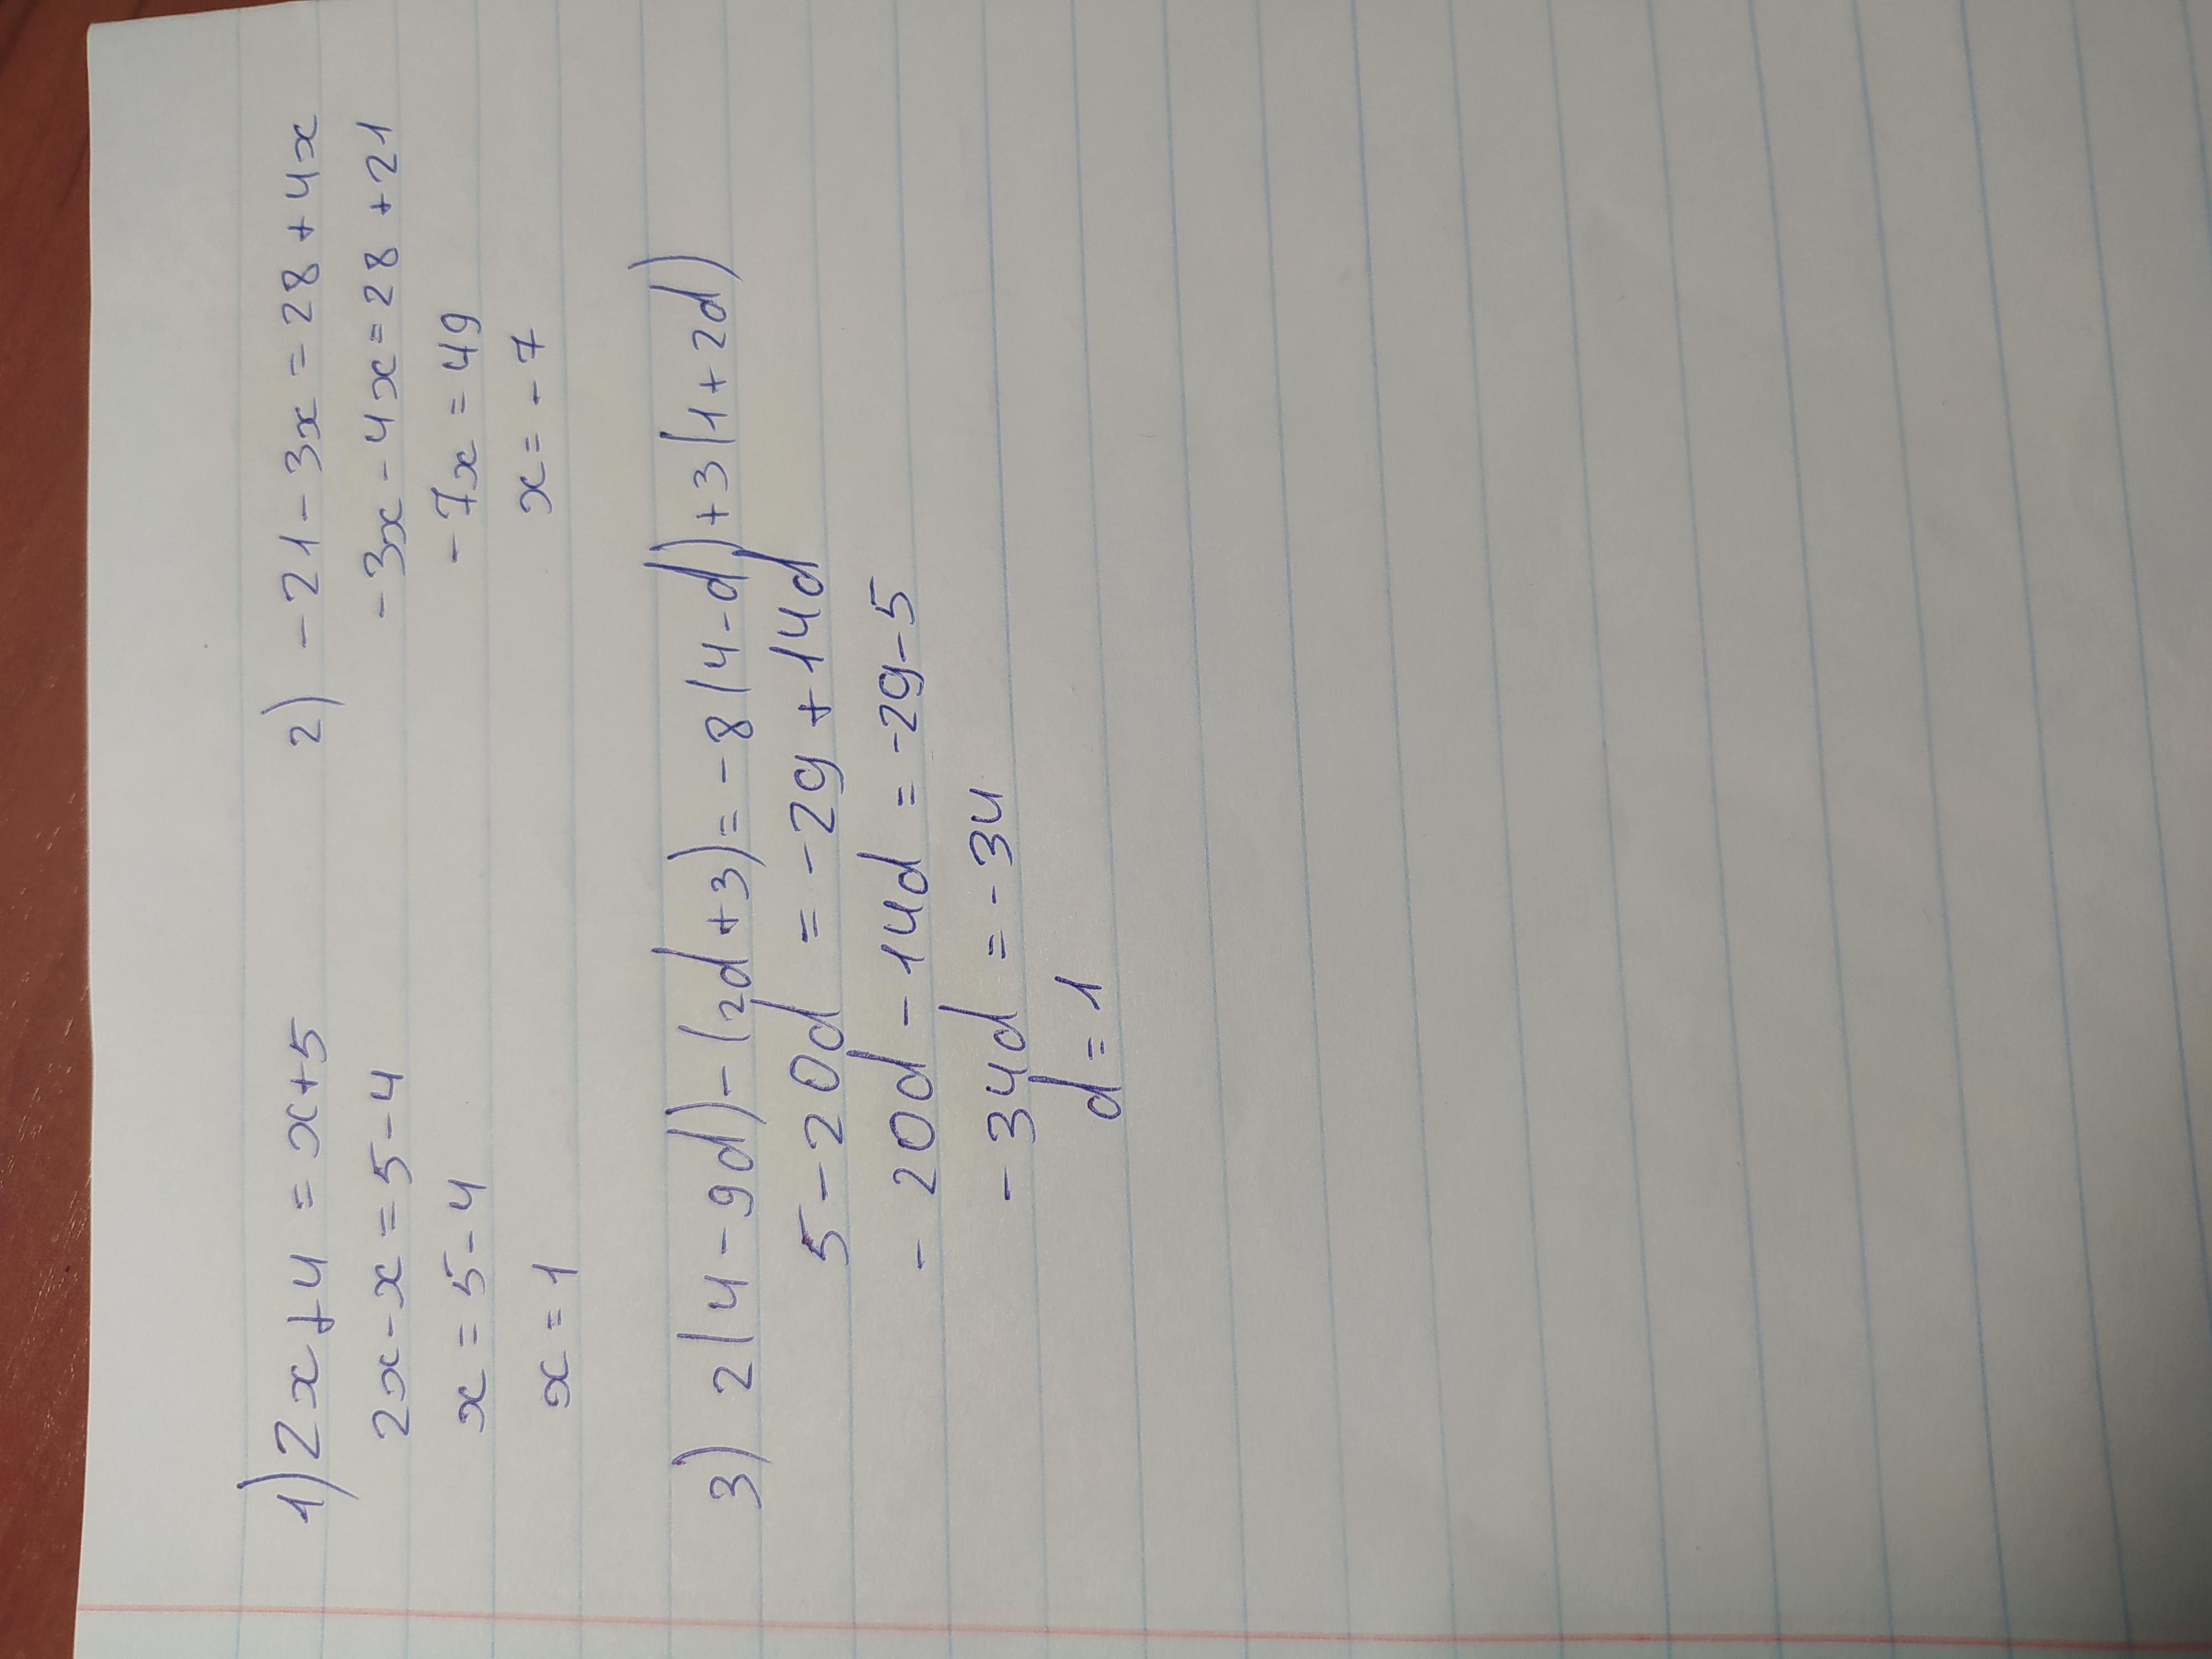 1) 2x+4 = x+5
2x-x = 5-4
x = 5-4
x = 1
2) -21-3x = 28+4x
-3x-4x = 28+21
-7x = 49
x = -7
3) 2(4-9d)-(2d+3) = -8(4-d)+3(1+2d)
5-20d = -29+14d
-20d-14d = -29-5
-34d = -34
d = 1